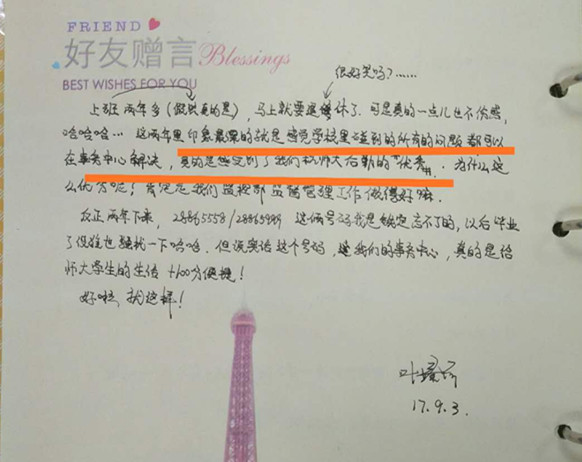 FRIEND
好友赠言 Blessings
BEST WISHES FOR YOU
很好笑吗?……
上班两年多(假装真的是),马上就要退休了.可是真的一点儿也不伤感,
哈哈哈…这两年里印象最深的就是感觉学校里碰到的所有的问题都可以
在事务中心解决,真的是感受到了我们杭师大后勤的“优秀”.为什么这
么优秀呢?肯定是我们监控部监督管理工作做得好嘛.
反正两年下来,28865558/28865999 这俩号码我是确定忘不了的,以后毕业
了没准也骚扰一下哈哈.但说实话这个号码,这我们的事务中心,真的是给
师大学生的生活 +100分便捷!
好啦,就这样!
叶
17.9.3.